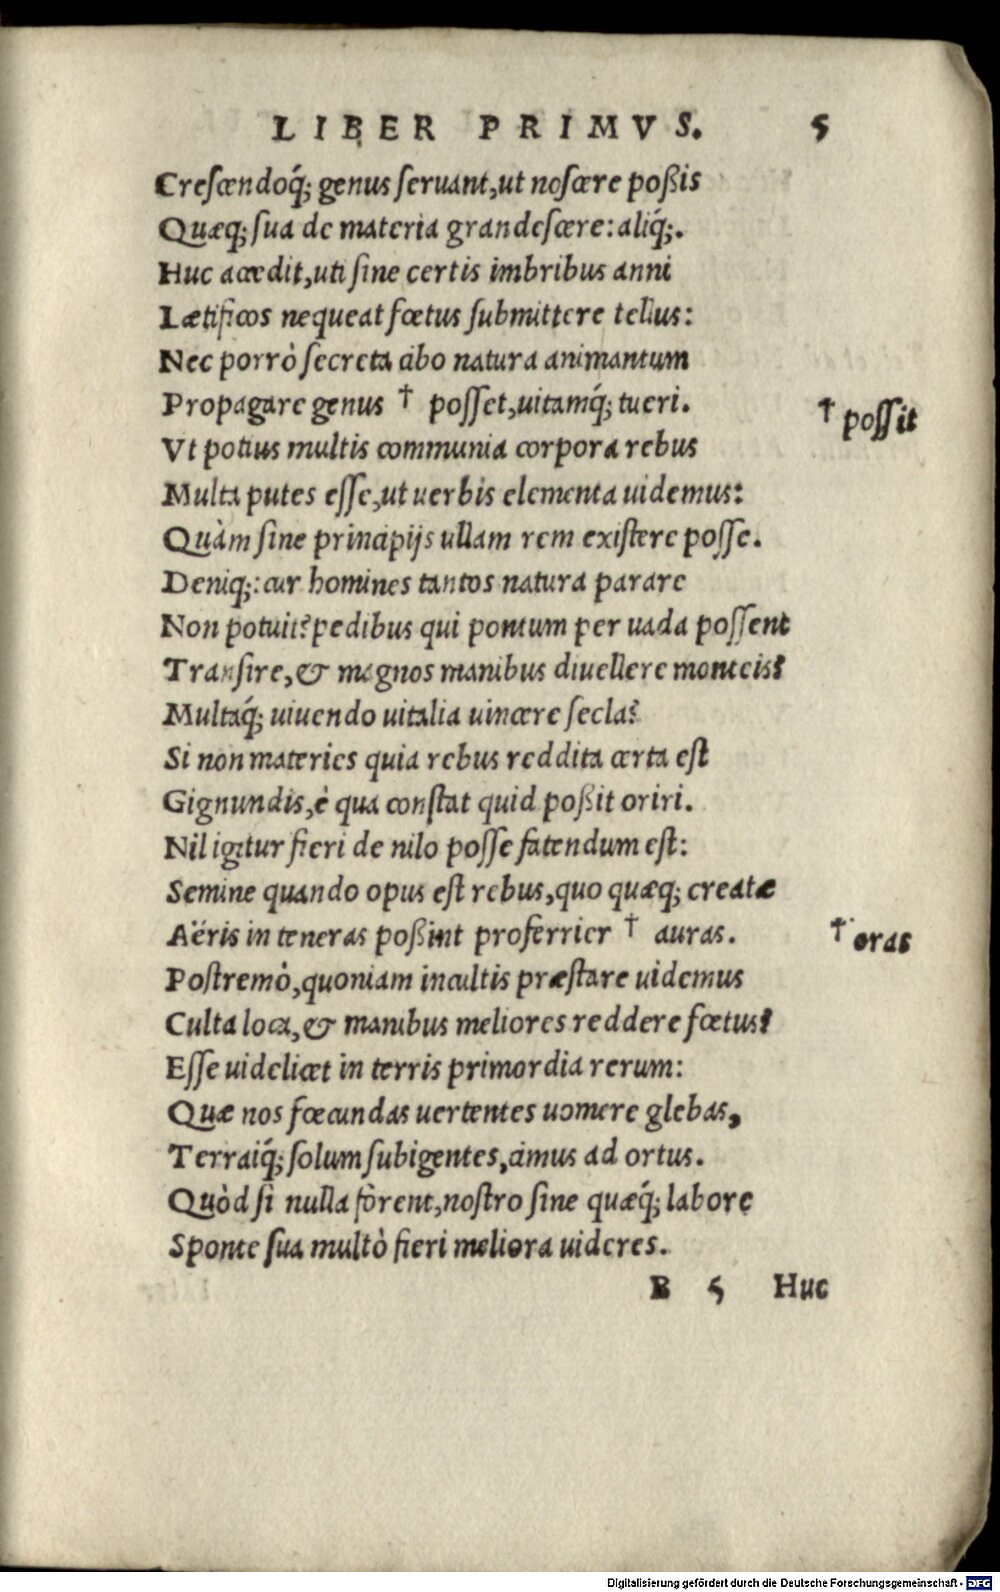 LIBER PRIMVS. 5
Creſcendoq́; genus ſeruant,ut noſcere poßis
Quæq; ſua de materia grandeſcere: aliq́;.
Huc accedit,uti ſine certis imbribus anni
Lætificos nequeat fœtus ſubmittere tellus:
Nec porrò ſecreta cibo natura animantum
Propagare genus † poſſet,uitamq́; tueri.
† poſſit
Vt potius multis communia corpora rebus
Multa putes eſſe,ut uerbis elementa uidemus:
Quàm ſine principijs ullam rem exiſtere poſſe.
Deniq;: cur homines tantos natura parare
Non potuit? pedibus qui pontum per uada poſſent
Tranſire,& magnos manibus diuellere monteis?
Multaq́; uiuendo uitalia uincere ſecla?
Si non materies quia rebus reddita certa eſt
Gignundis,è qua conſtat quid poßit oriri.
Nil igitur fieri de nilo poſſe fatendum eſt:
Semine quando opus eſt rebus,quo quæq; creatæ
Aëris in teneras poßint proferrier † auras.
† oras
Poſtremò,quoniam incultis præſtare uidemus
Culta loca,& manibus meliores reddere fœtus?
Eſſe uidelicet in terris primordia rerum:
Quæ nos fœcundas uertentes uomere glebas,
Terraiq́; ſolum ſubigentes,cimus ad ortus.
Quòd ſi nulla forent,noſtro ſine quæq́; labore
Sponte ſua multò fieri meliora uideres.
B 5 Huc
Digitalisierung gefördert durch die Deutsche Forschungsgemeinschaft - DFG